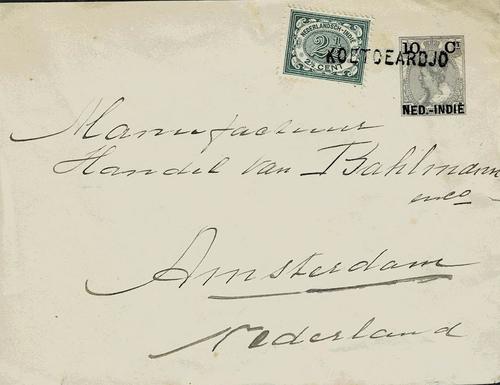 NEDERLANDSCH-INDIË
2½
2½ CENT
KOETOEARDJO
10 Ct
NED.-INDIË
Manufacturen
Handel van Bahlmann
en Co
Amsterdam
Nederland